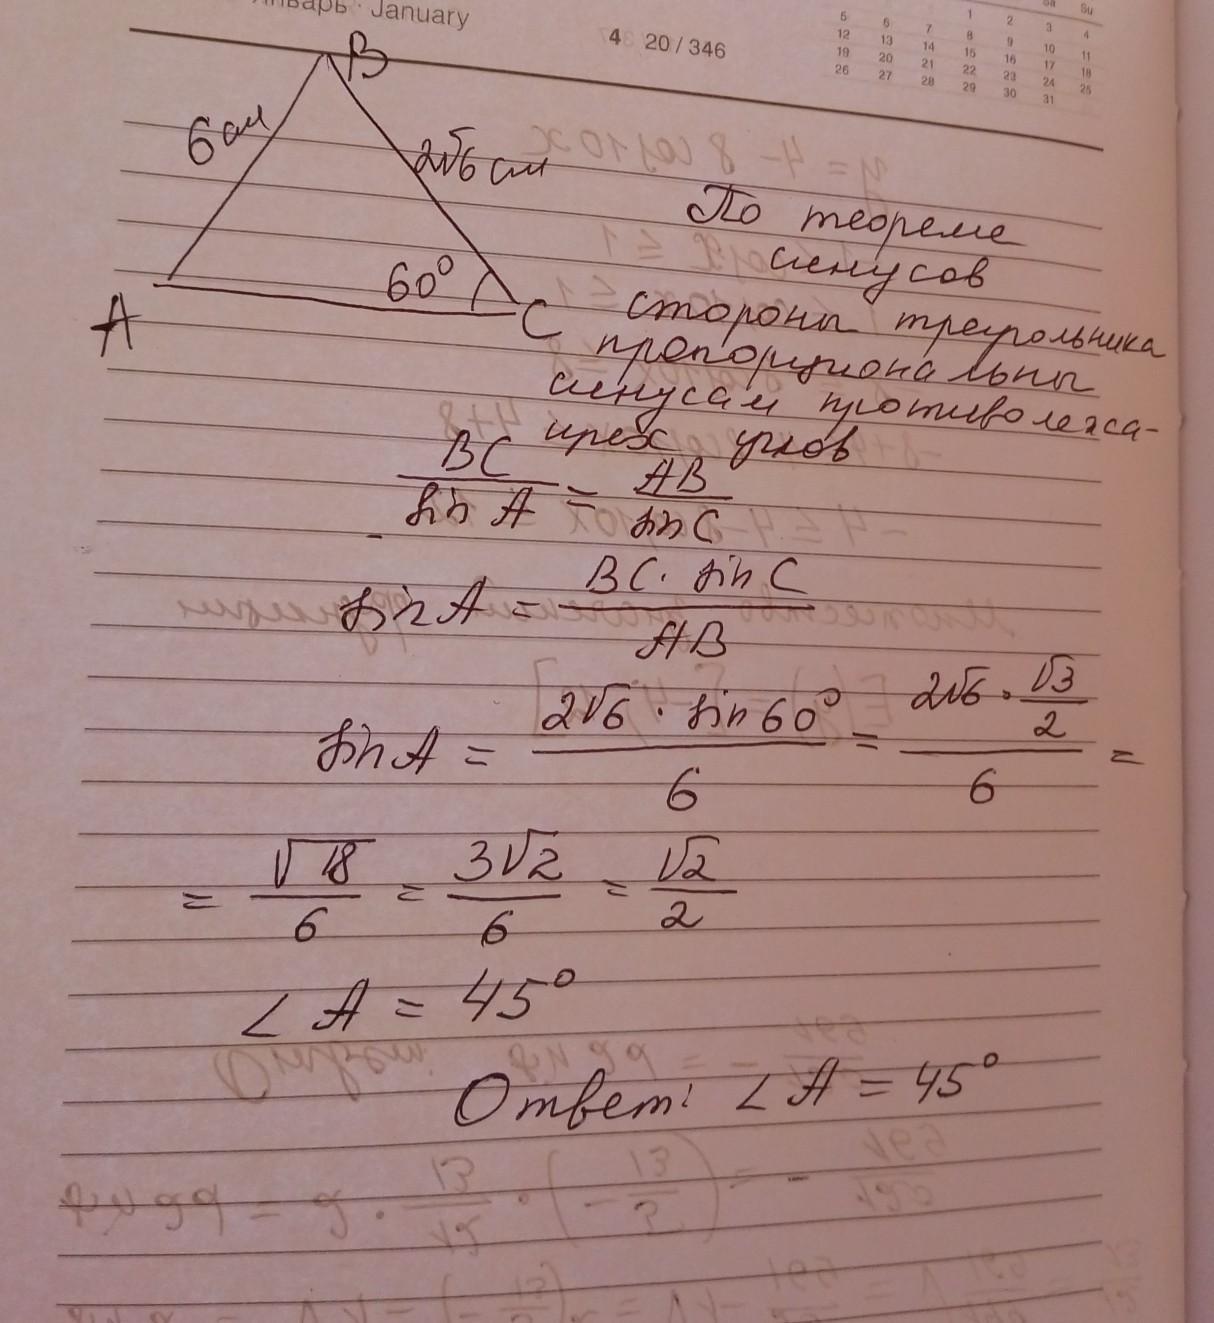 Январь · January
4 20 / 346
Sa Su
1 2 3 4
5 6 7 8 9 10 11
12 13 14 15 16 17 18
19 20 21 22 23 24 25
26 27 28 29 30 31
B
6 см
2√6 см
60°
A
C
По теореме
синусов
стороны треугольника
пропорциональны
синусам противолежа-
щих углов
BC/sin A = AB/sin C
sin A = BC · sin C / AB
sin A = 2√6 · sin 60° / 6 = 2√6 · √3/2 / 6 =
= √18/6 = 3√2/6 = √2/2
∠ A = 45°
Ответ: ∠ A = 45°